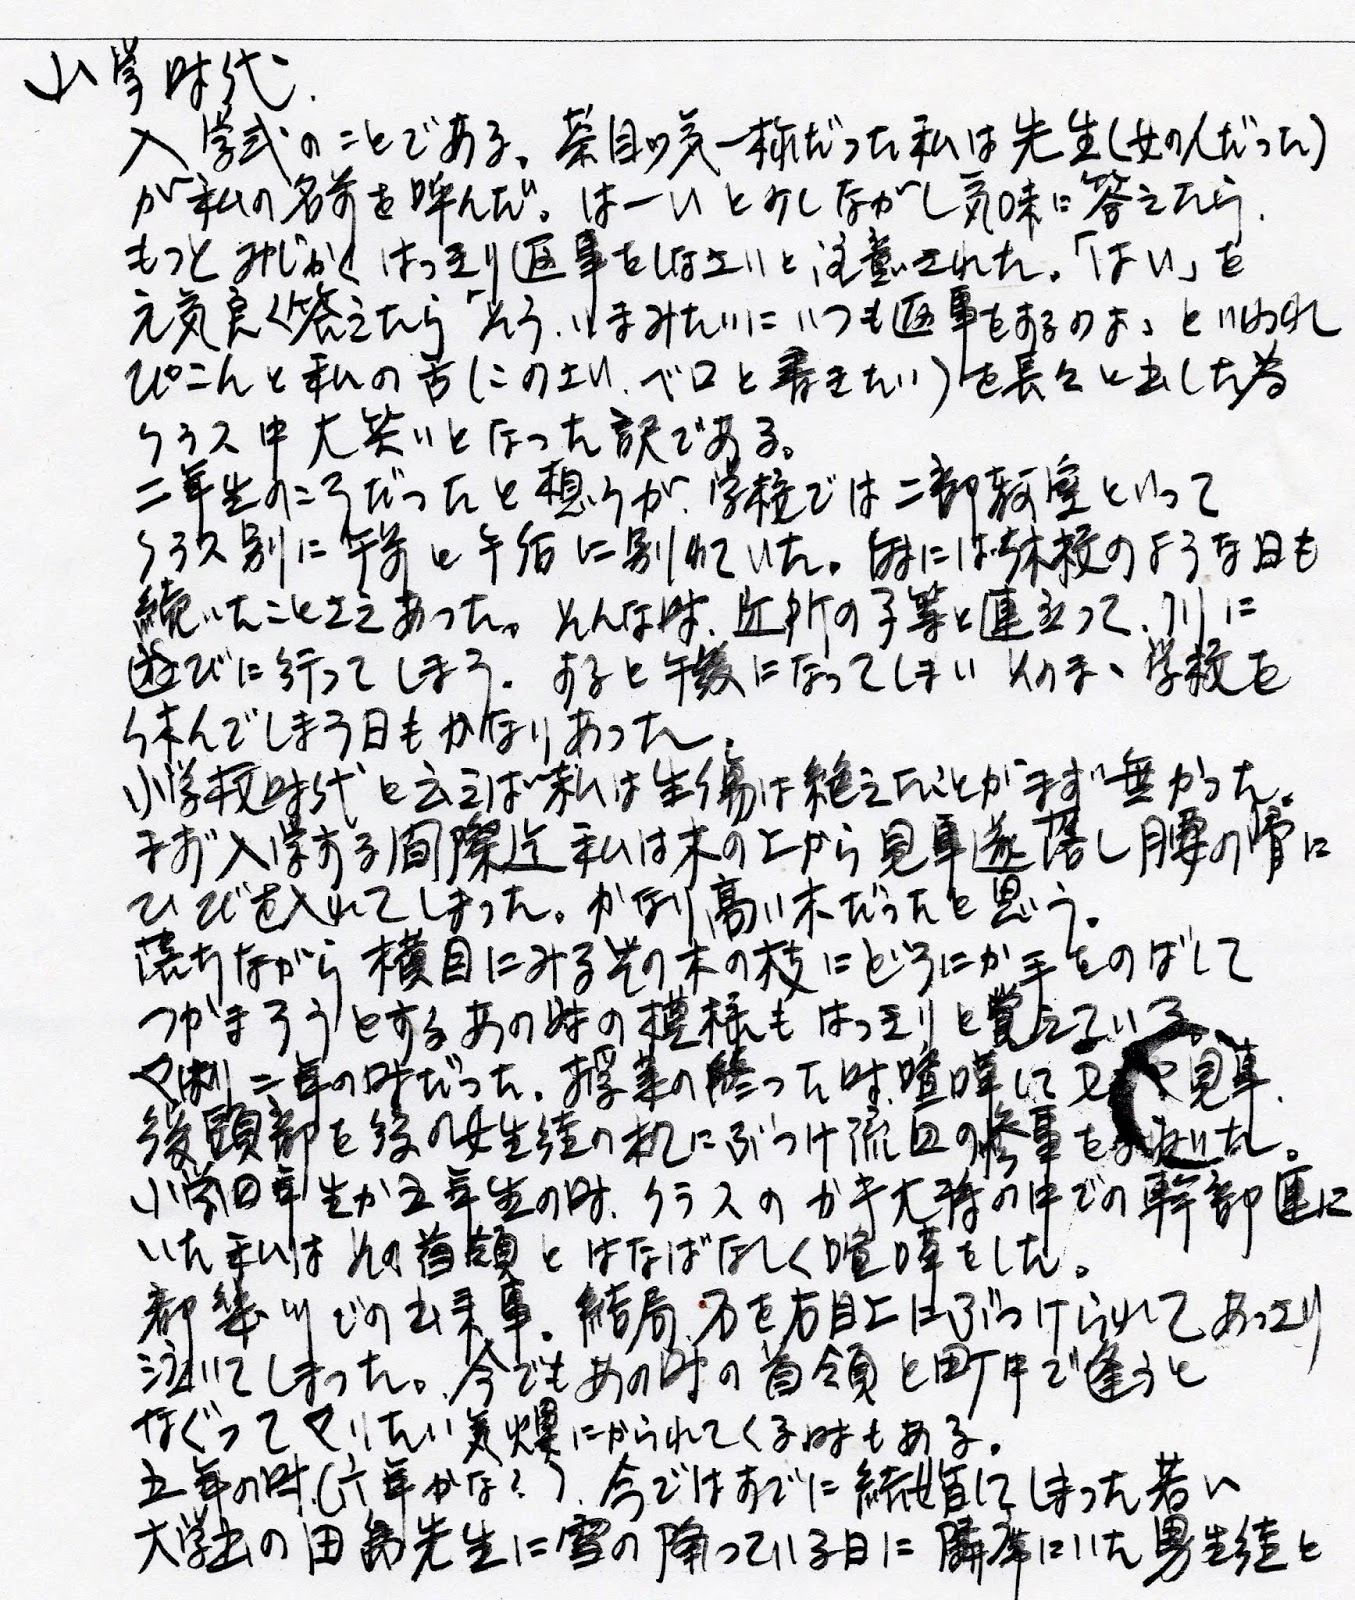 小学時代.
入学式のことである。茶目ッ気一杯だった私は先生(女の人だった)
が私の名前を呼んだ。はーいと少しながし気味に答えたら、
もっとみじかくはっきり返事をしなさいと注意された。「はい」を
元気良く答えたら「そう、いまみたいにいつも返事をするのよ」といわれ
ぴこんと私の舌(このさい、ベロと書きたい)を長々と出した為
クラス中大笑いとなった訳である。
二年生のころだったと想うが、学校では二部教室といって
クラス別に午前と午后に別れていた。時には休校のような日も
続いたことさえあった。そんな時、近所の子等と連立って、川に
遊びに行ってしまう。すると午後になってしまいそのまゝ学校を
休んでしまう日もかなりあった。
小学校時代と云えば私は生傷は絶えたことがまず無かった。
まず入学する間際迄私は木の上から見事墜落し腰の骨に
ひびを入れてしまった。かなり高い木だったと思う。
落ちながら横目にみるその木の枝にどうにか手をのばして
つかまろうとするあの時の模様もはっきりと覚えている。
やはり二年の時だった。授業の終った時、喧嘩して 見事、
後頭部を後の女生徒の机にぶつけ流血の惨事を した。
小学四年生か五年生の時、クラスのガキ大将の中での幹部連に
いた私はその首領とはなばなしく喧嘩をした。
都幾川での出来事。結局、石を右目上にぶつけられてあっさり
泣いてしまった。今でもあの時の首領と町中で逢うと
なぐってやりたい にかられてくる時もある。
五年の時、(六年かな?)、今ではすでに してしまった若い
大学出の田島先生に雪の降っている日に隣席にいた男生徒と